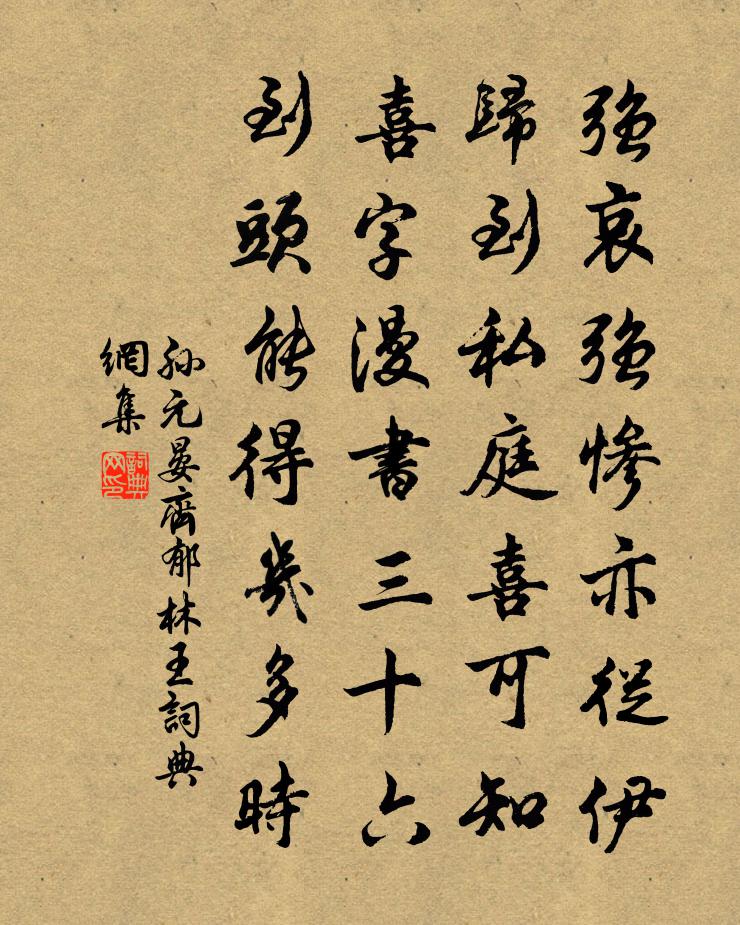 強哀強慘亦從伊
歸到私庭喜可知
喜字漫書三十六
到頭能得幾多時
孫元晏齊郁林王詞典
網集
詞典网印